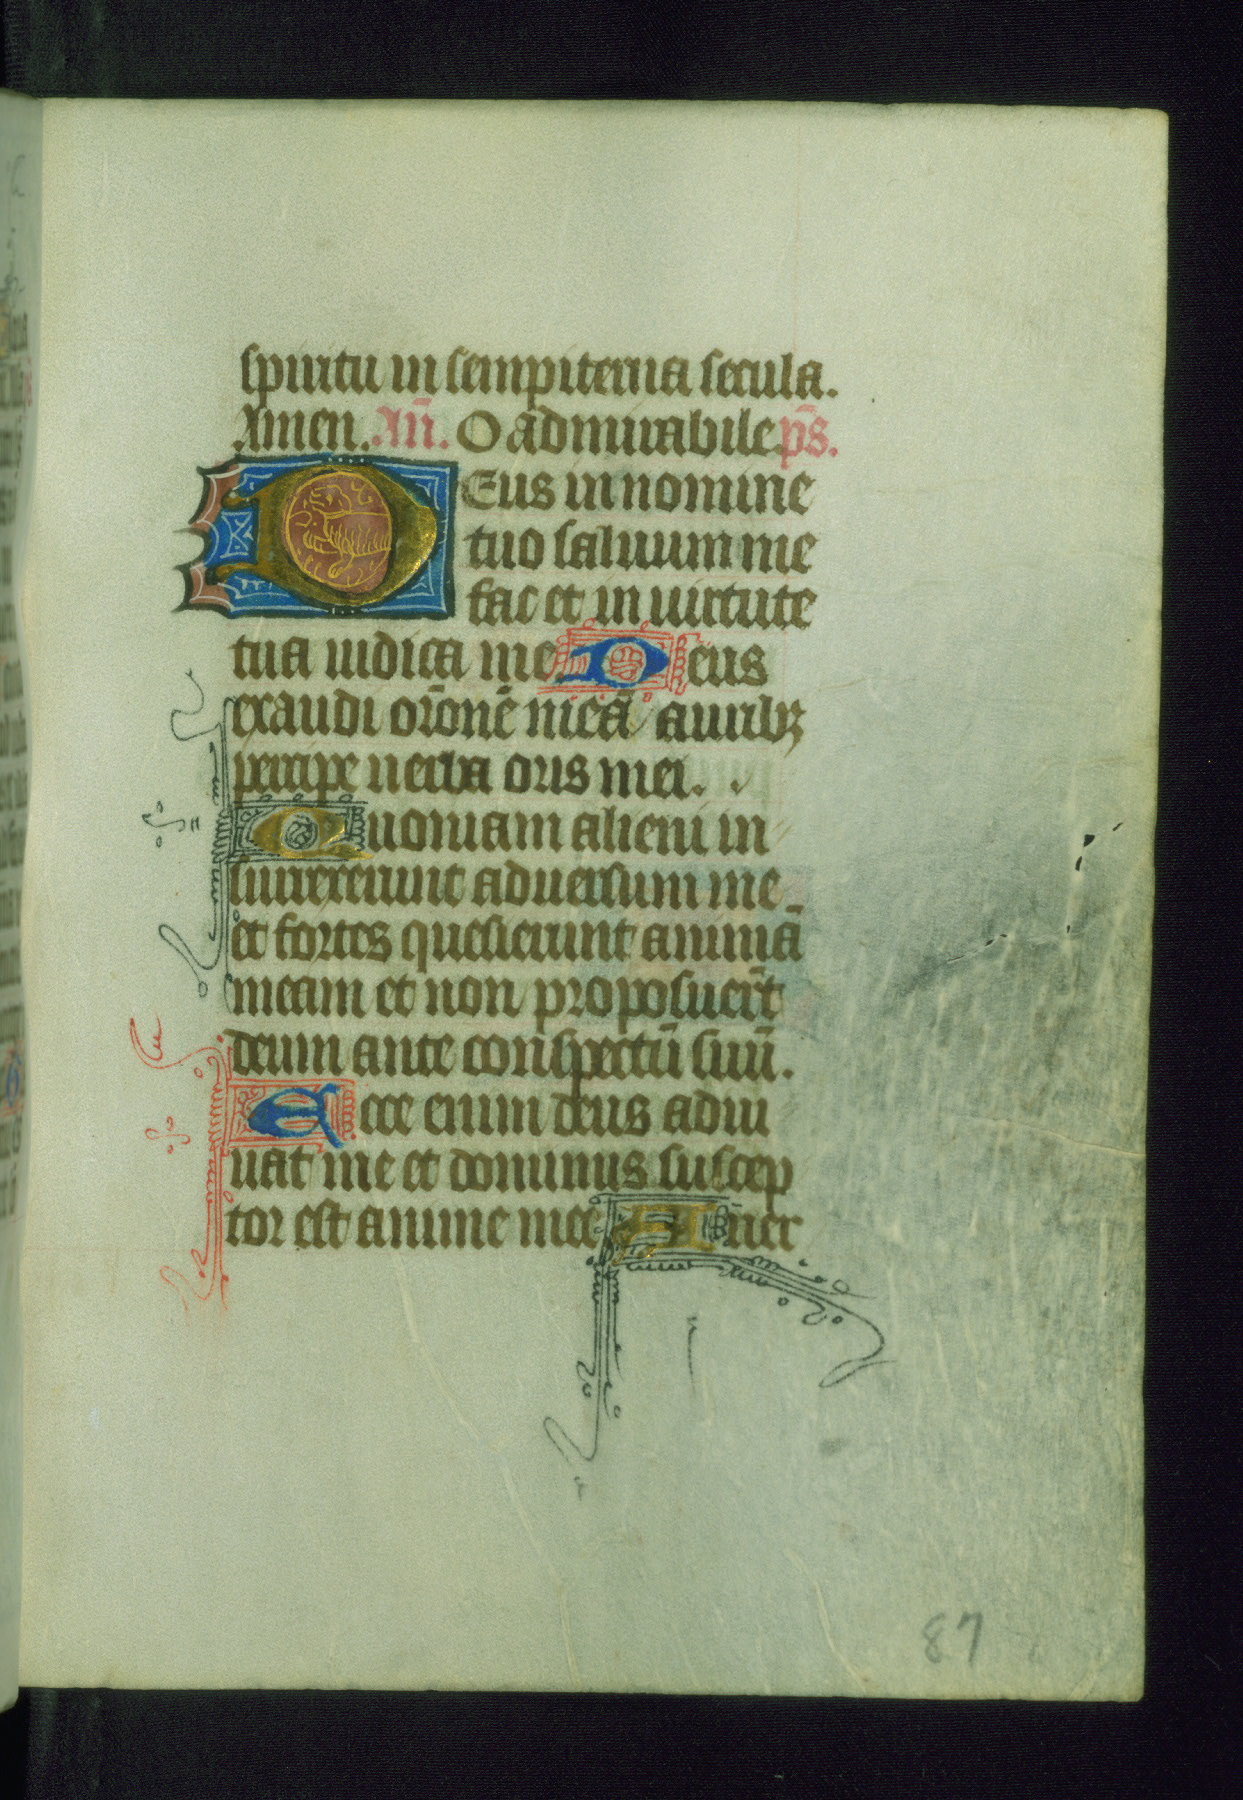 spiritu in sempiterna secula.
Amen. Añ. O admirabile p̄s.
Deus in nomine
tuo saluum me
fac et in uirtute
tua iudica me Deus
exaudi or̄onē meā auribꝫ
percipe uerba oris mei.
Quoniam alieni in
surrexerunt aduersum me
et fortes quesierunt animā
meam et non proposuer̄t
deum ante conspectū suū.
Ecce enim deus adiu
uat me et dominus suscep
tor est anime mee Auer
87